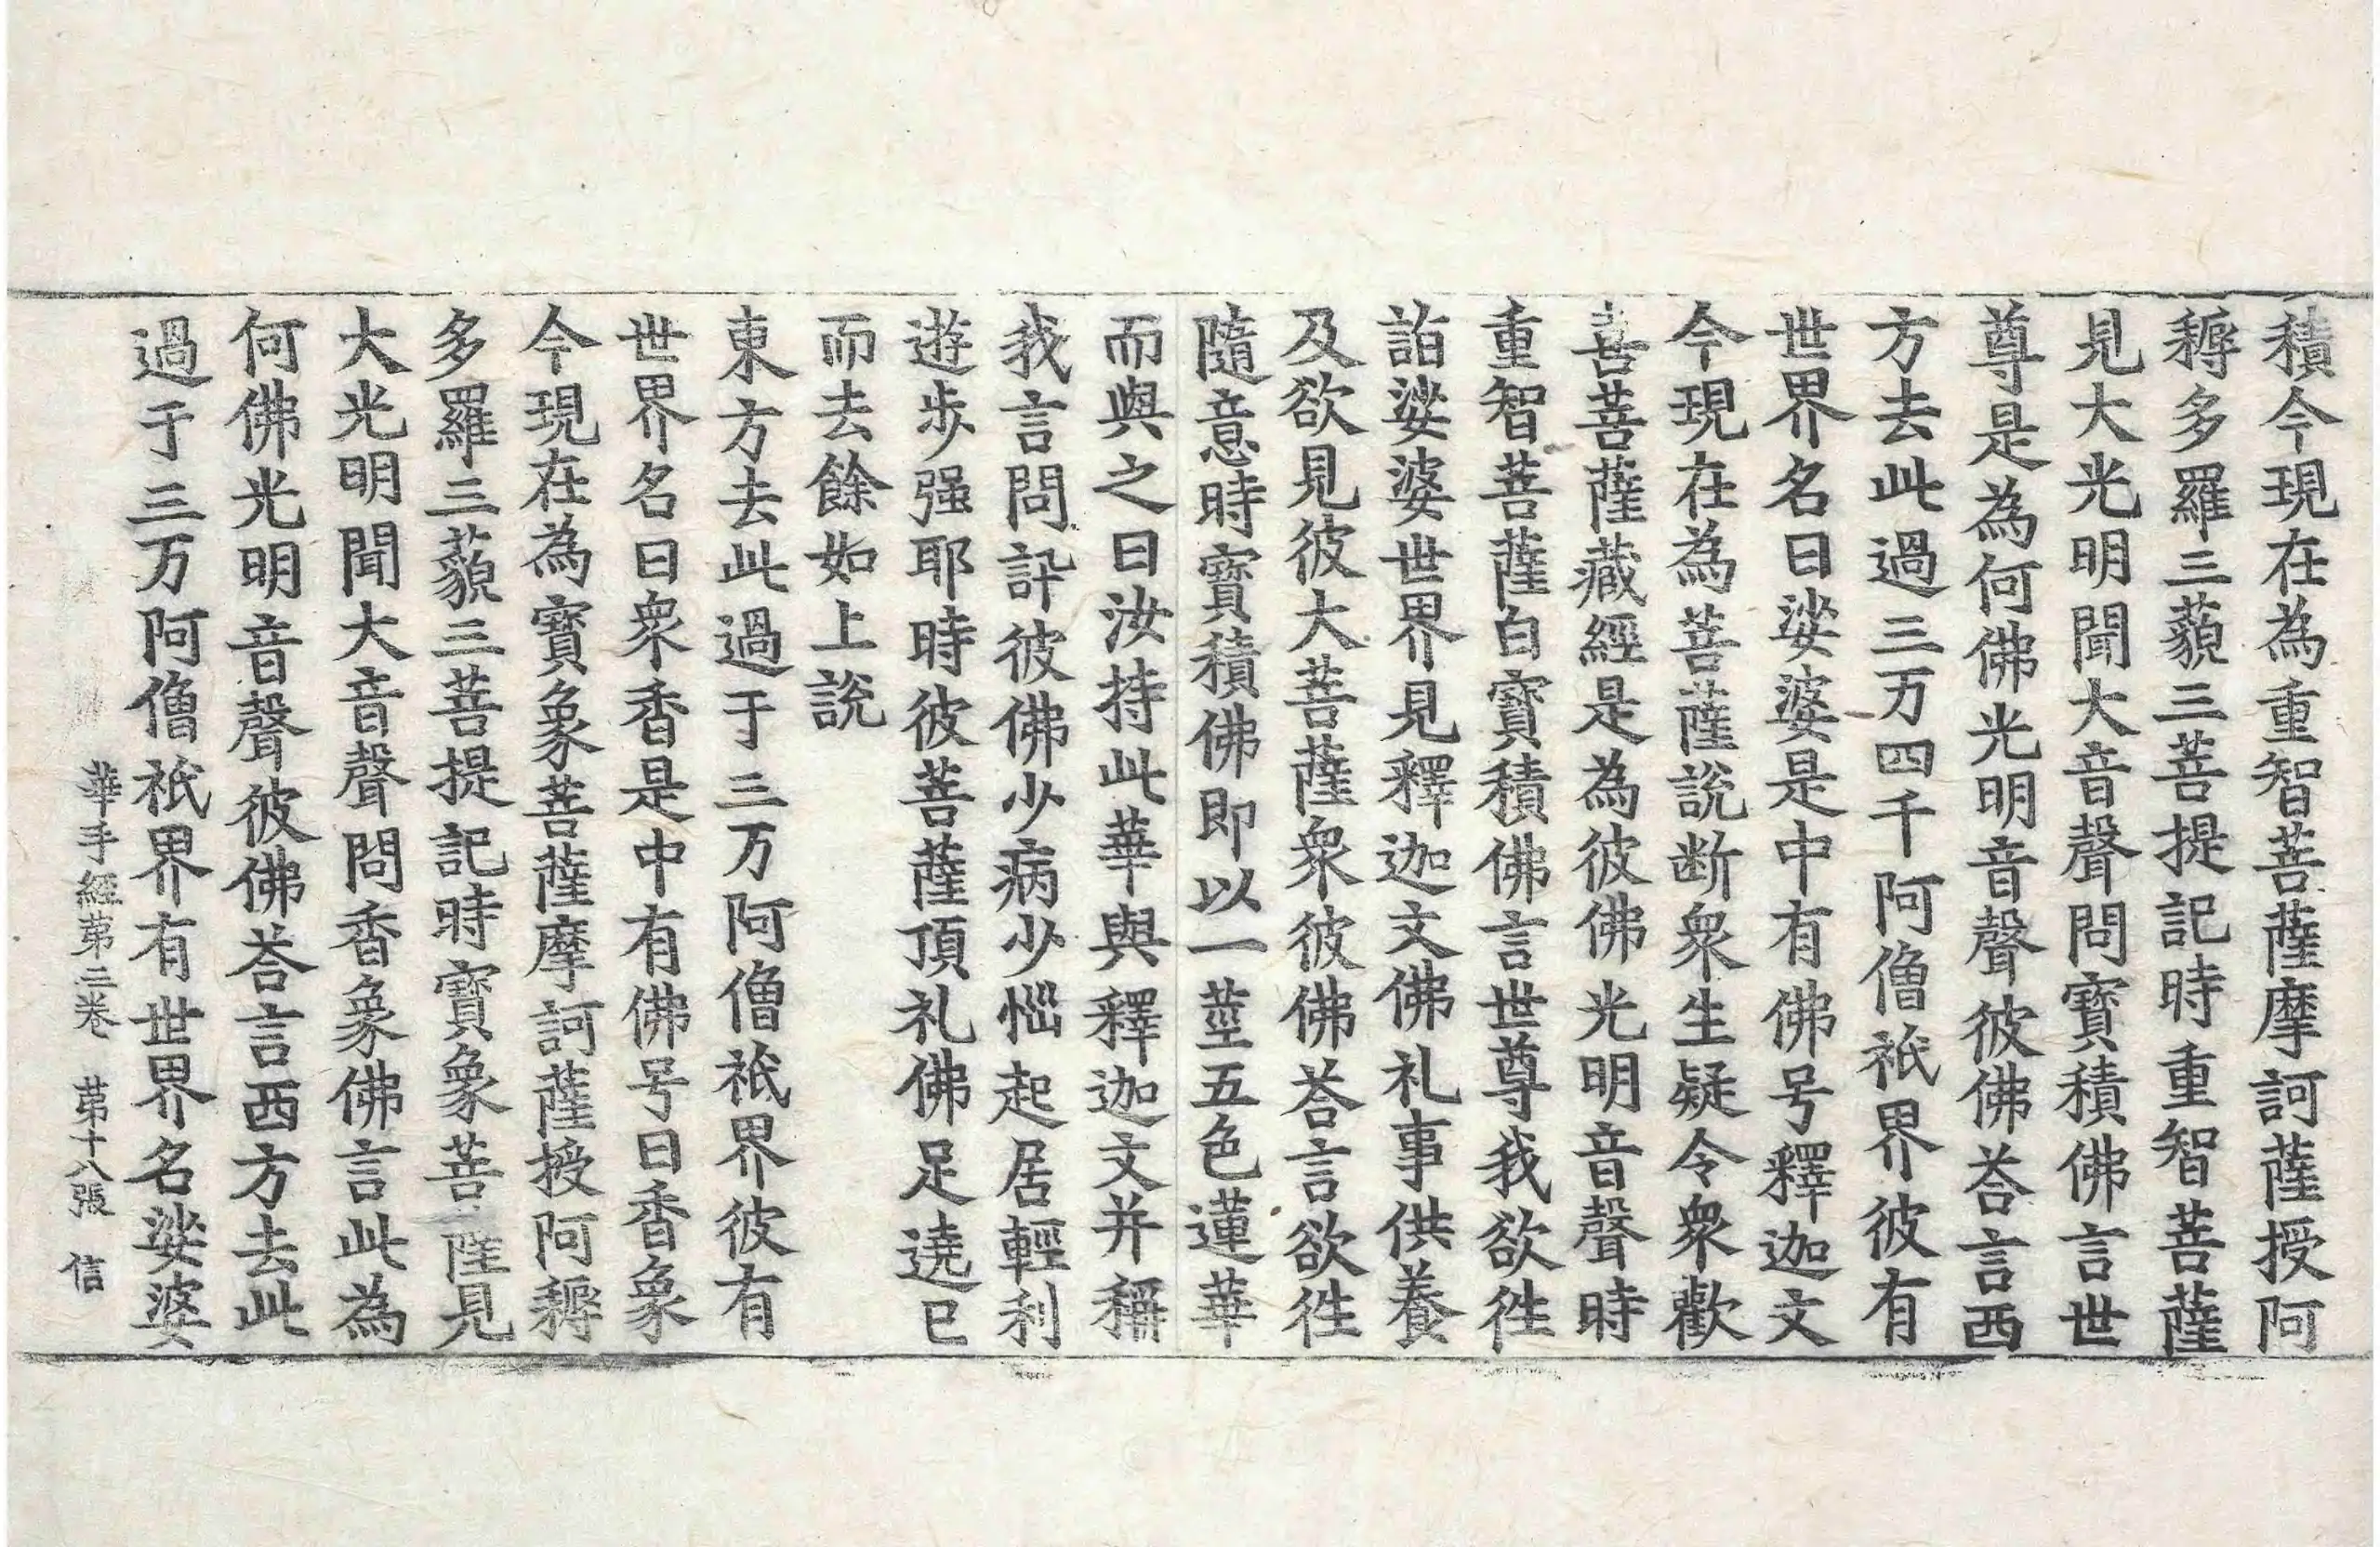 積今現在為重智菩薩摩訶薩授阿
耨多羅三藐三菩提記時重智菩薩
見大光明聞大音聲問寶積佛言世
尊是為何佛光明音聲彼佛荅言西
方去此過三万四千阿僧祇界彼有
世界名曰娑婆是中有佛号釋迦文
今現在為菩薩說断衆生疑令衆歡
喜菩薩藏經是為彼佛光明音聲時
重智菩薩白寶積佛言世尊我欲徃
詣娑婆世界見釋迦文佛礼事供養
及欲見彼大菩薩衆彼佛荅言欲徃
隨意時寶積佛即以一莖五色蓮華
而與之曰汝持此華與釋迦文并稱
我言問訊彼佛少病少惱起居輕利
遊步强耶時彼菩薩頂礼佛足遶已
而去餘如上說
東方去此過于三万阿僧祇界彼有
世界名曰衆香是中有佛号曰香象
今現在為寶象菩薩摩訶薩授阿耨
多羅三藐三菩提記時寶象菩薩見
大光明聞大音聲問香象佛言此為
何佛光明音聲彼佛荅言西方去此
過于三万阿僧祇界有世界名娑婆
華手經苐二卷 苐十八張 信